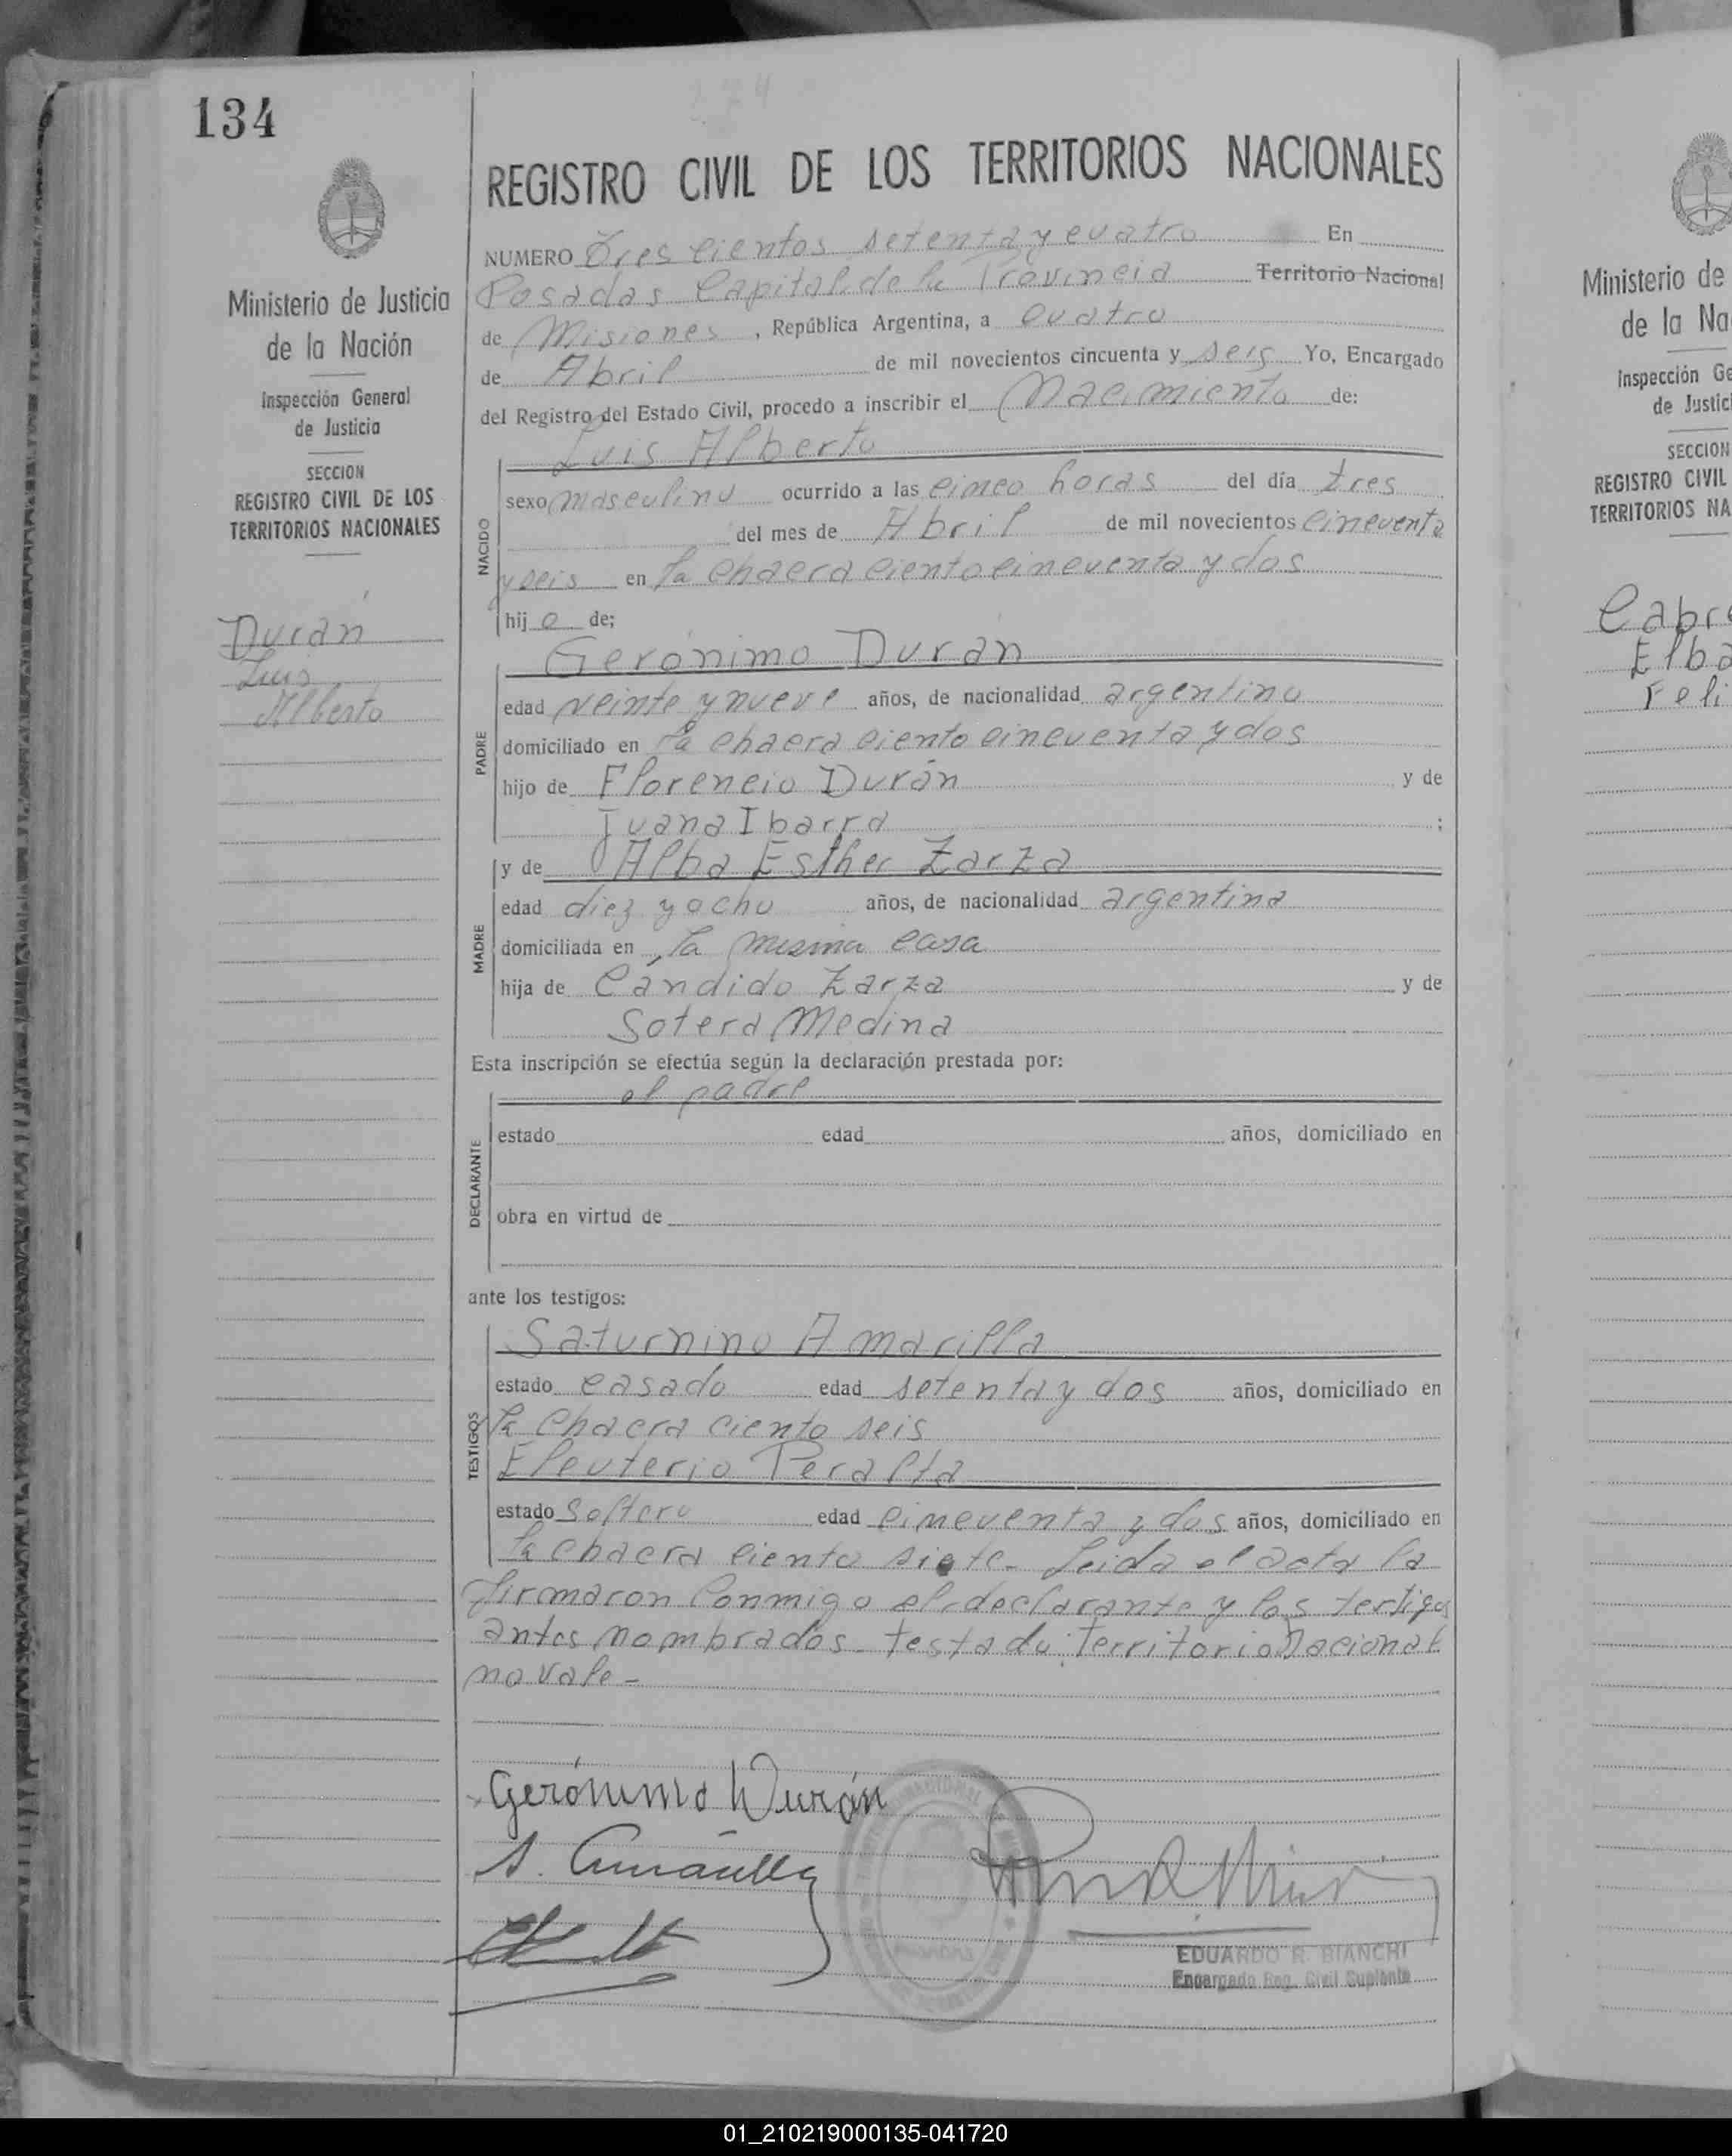 134
REGISTRO CIVIL DE LOS TERRITORIOS NACIONALES
Ministerio de Justicia
de la Nación
Inspección General
de Justicia
SECCION
REGISTRO CIVIL DE LOS
TERRITORIOS NACIONALES
Durán
Luis
Alberto
NUMERO Tres cientos setenta y cuatro En
Posadas Capital de la Provincia Territorio Nacional
de Misiones, República Argentina, a cuatro
de Abril de mil novecientos cincuenta y seis Yo, Encargado
del Registro del Estado Civil, procedo a inscribir el Nacimiento de:
NACIDO
Luis Alberto
sexo masculino ocurrido a las cinco horas del día tres
del mes de Abril de mil novecientos cincuenta
y seis en la chacra ciento cincuenta y dos
hijo de;
PADRE
Gerónimo Durán
edad veinte y nueve años, de nacionalidad argentino
domiciliado en la chacra ciento cincuenta y dos
hijo de Florencio Durán y de
Juana Ibarra ;
MADRE
y de Alba Esther Zarza
edad diez y ocho años, de nacionalidad argentina
domiciliada en la misma casa
hija de Cándido Zarza y de
Sotera Medina
Esta inscripción se efectúa según la declaración prestada por:
DECLARANTE
el padre
estado edad años, domiciliado en
obra en virtud de
ante los testigos:
TESTIGOS
Saturnino Amarilla
estado casado edad setenta y dos años, domiciliado en
la chacra ciento seis
Eleuterio Peralta
estado soltero edad cincuenta y dos años, domiciliado en
la chacra ciento siete- Leida el acta la
firmaron conmigo el declarante y los testigos
antes nombrados- testado: Territorio Nacional
no vale-
Gerónimo Durán
S. Amarilla
EDUARDO R. BIANCHI
Encargado Reg. Civil Suplente
Ministerio de
de la Na
Inspección Ge
de Justic
SECCION
REGISTRO CIVIL
TERRITORIOS NA
Cabr
Elba
Feli
01_210219000135-041720